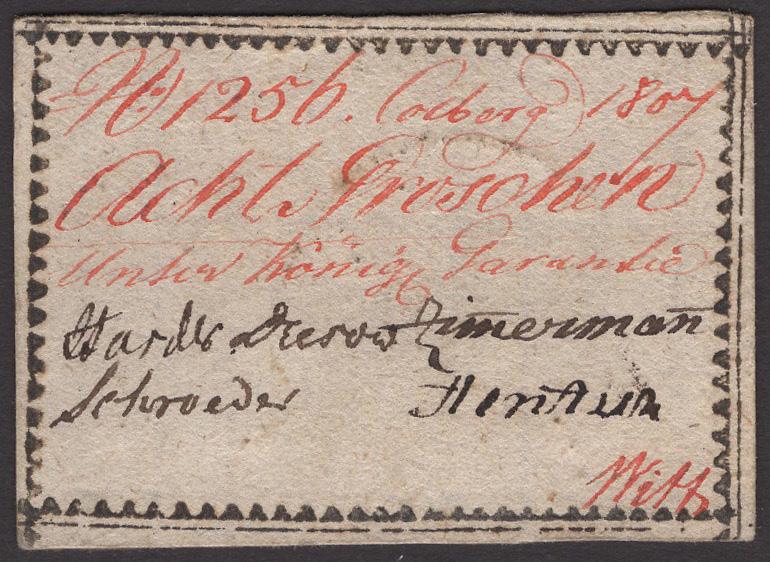 No 1256. Colberg 1807
Acht Groschen
Unter Königl Garantie
Harder Dresow Zimmerman
Schroeder
Witt